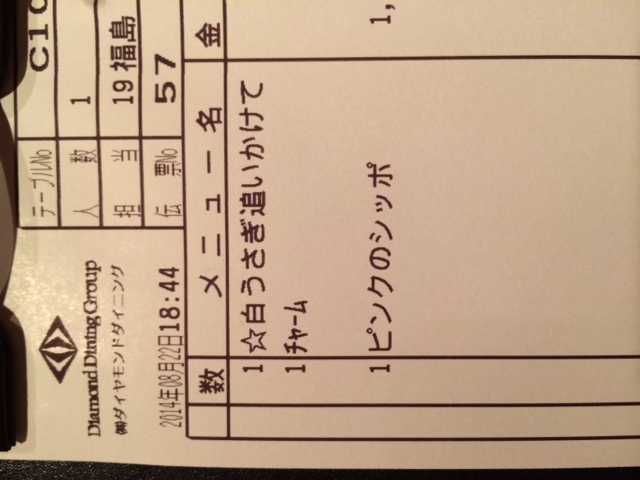 Diamond Dining Group
㈱ダイヤモンドダイニング
2014年08月22日18:44
テーブルNo C10
人数 1
担当 19福島
伝票No 57
数 メニュー名 金
1 ☆白うさぎ追いかけて
1 チャーム
1 ピンクのシッポ 1,